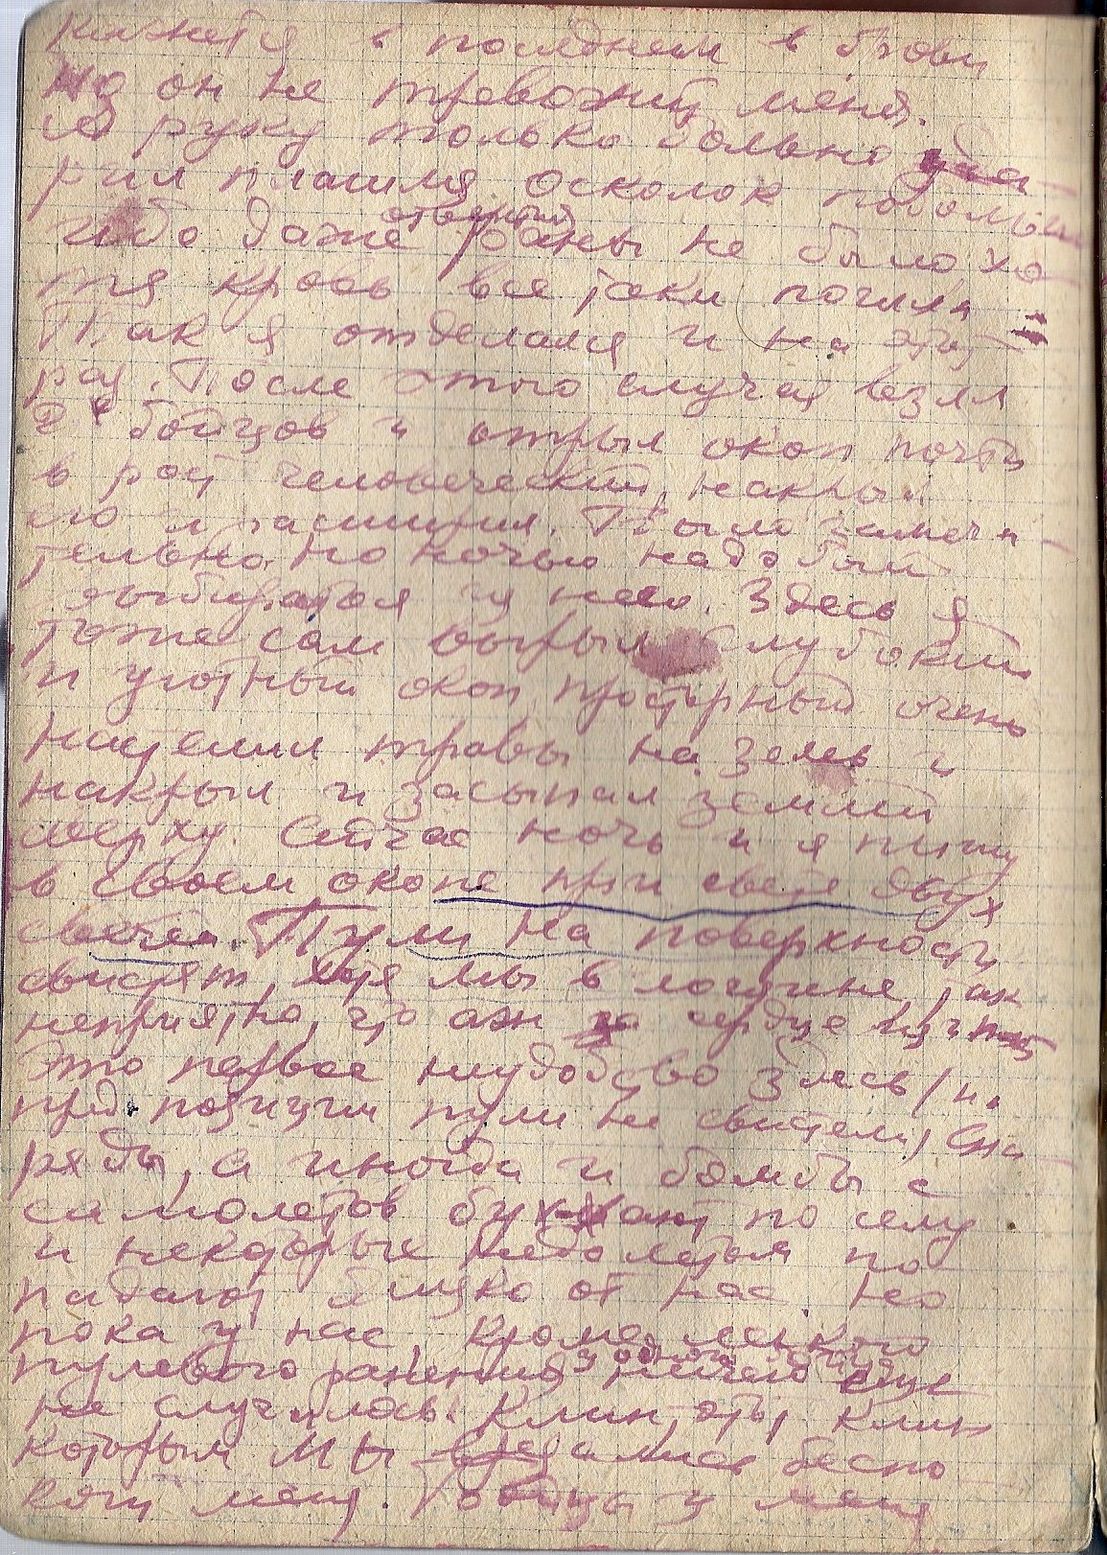 кажется в последнем в брови
но он не тревожит меня.
В руку только больно уда-
рил плашмя осколок побольше
ибо даже отверстия раны не было хо-
тя кровь все таки потекла
Так я отделался и на этот
раз. После этого случая взял
2х бойцов и отрыл окоп почти
в рост человеческий, накрыл
его и расширил. Было замеча-
тельно. Но ночью надо было
выбираться из него. Здесь я
тоже сам вырыл глубокий
и уютный окоп, просторный очень
настелил травы на земь и
накрыл и засыпал землей
сверху. Сейчас ночь и я пишу
в своем окопе при свете двух
свечей. Пули на поверхности
свистят, хотя мы в лощине, так
неприятно, что аж за сердце щипет
Это первое неудобство здесь /на
пред. позиции пули не свистели/ сна-
ряды, а иногда и бомбы с
самолетов бухают по селу
и некоторые недолетая по
падают близко от нас. Но
пока у нас кроме легкого
пулевого ранения одного бойца ничего еще
не случилось. Клин, этот клин
которым мы врезались беспо
коит меня. Бойцы у меня